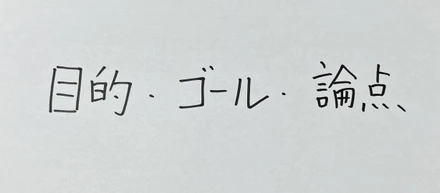 目的・ゴール・論点、